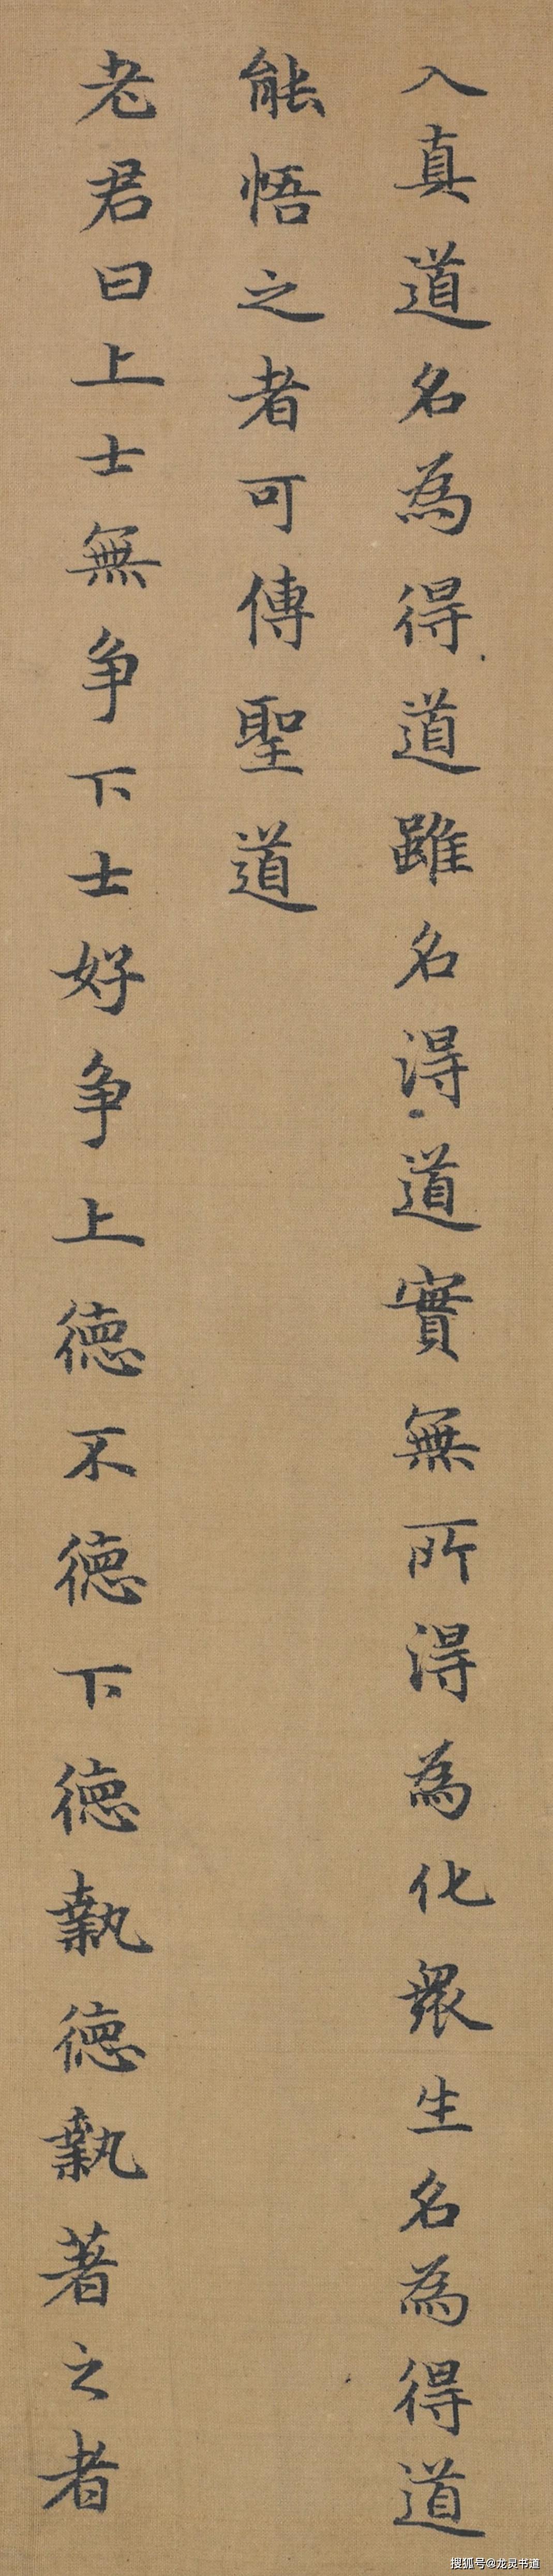 入真道名為得道雖名得道實無所得為化衆生名為得道
能悟之者可傳聖道
老君曰上士無争下士好争上德不德下德執德執著之者
搜狐号@龙灵书道